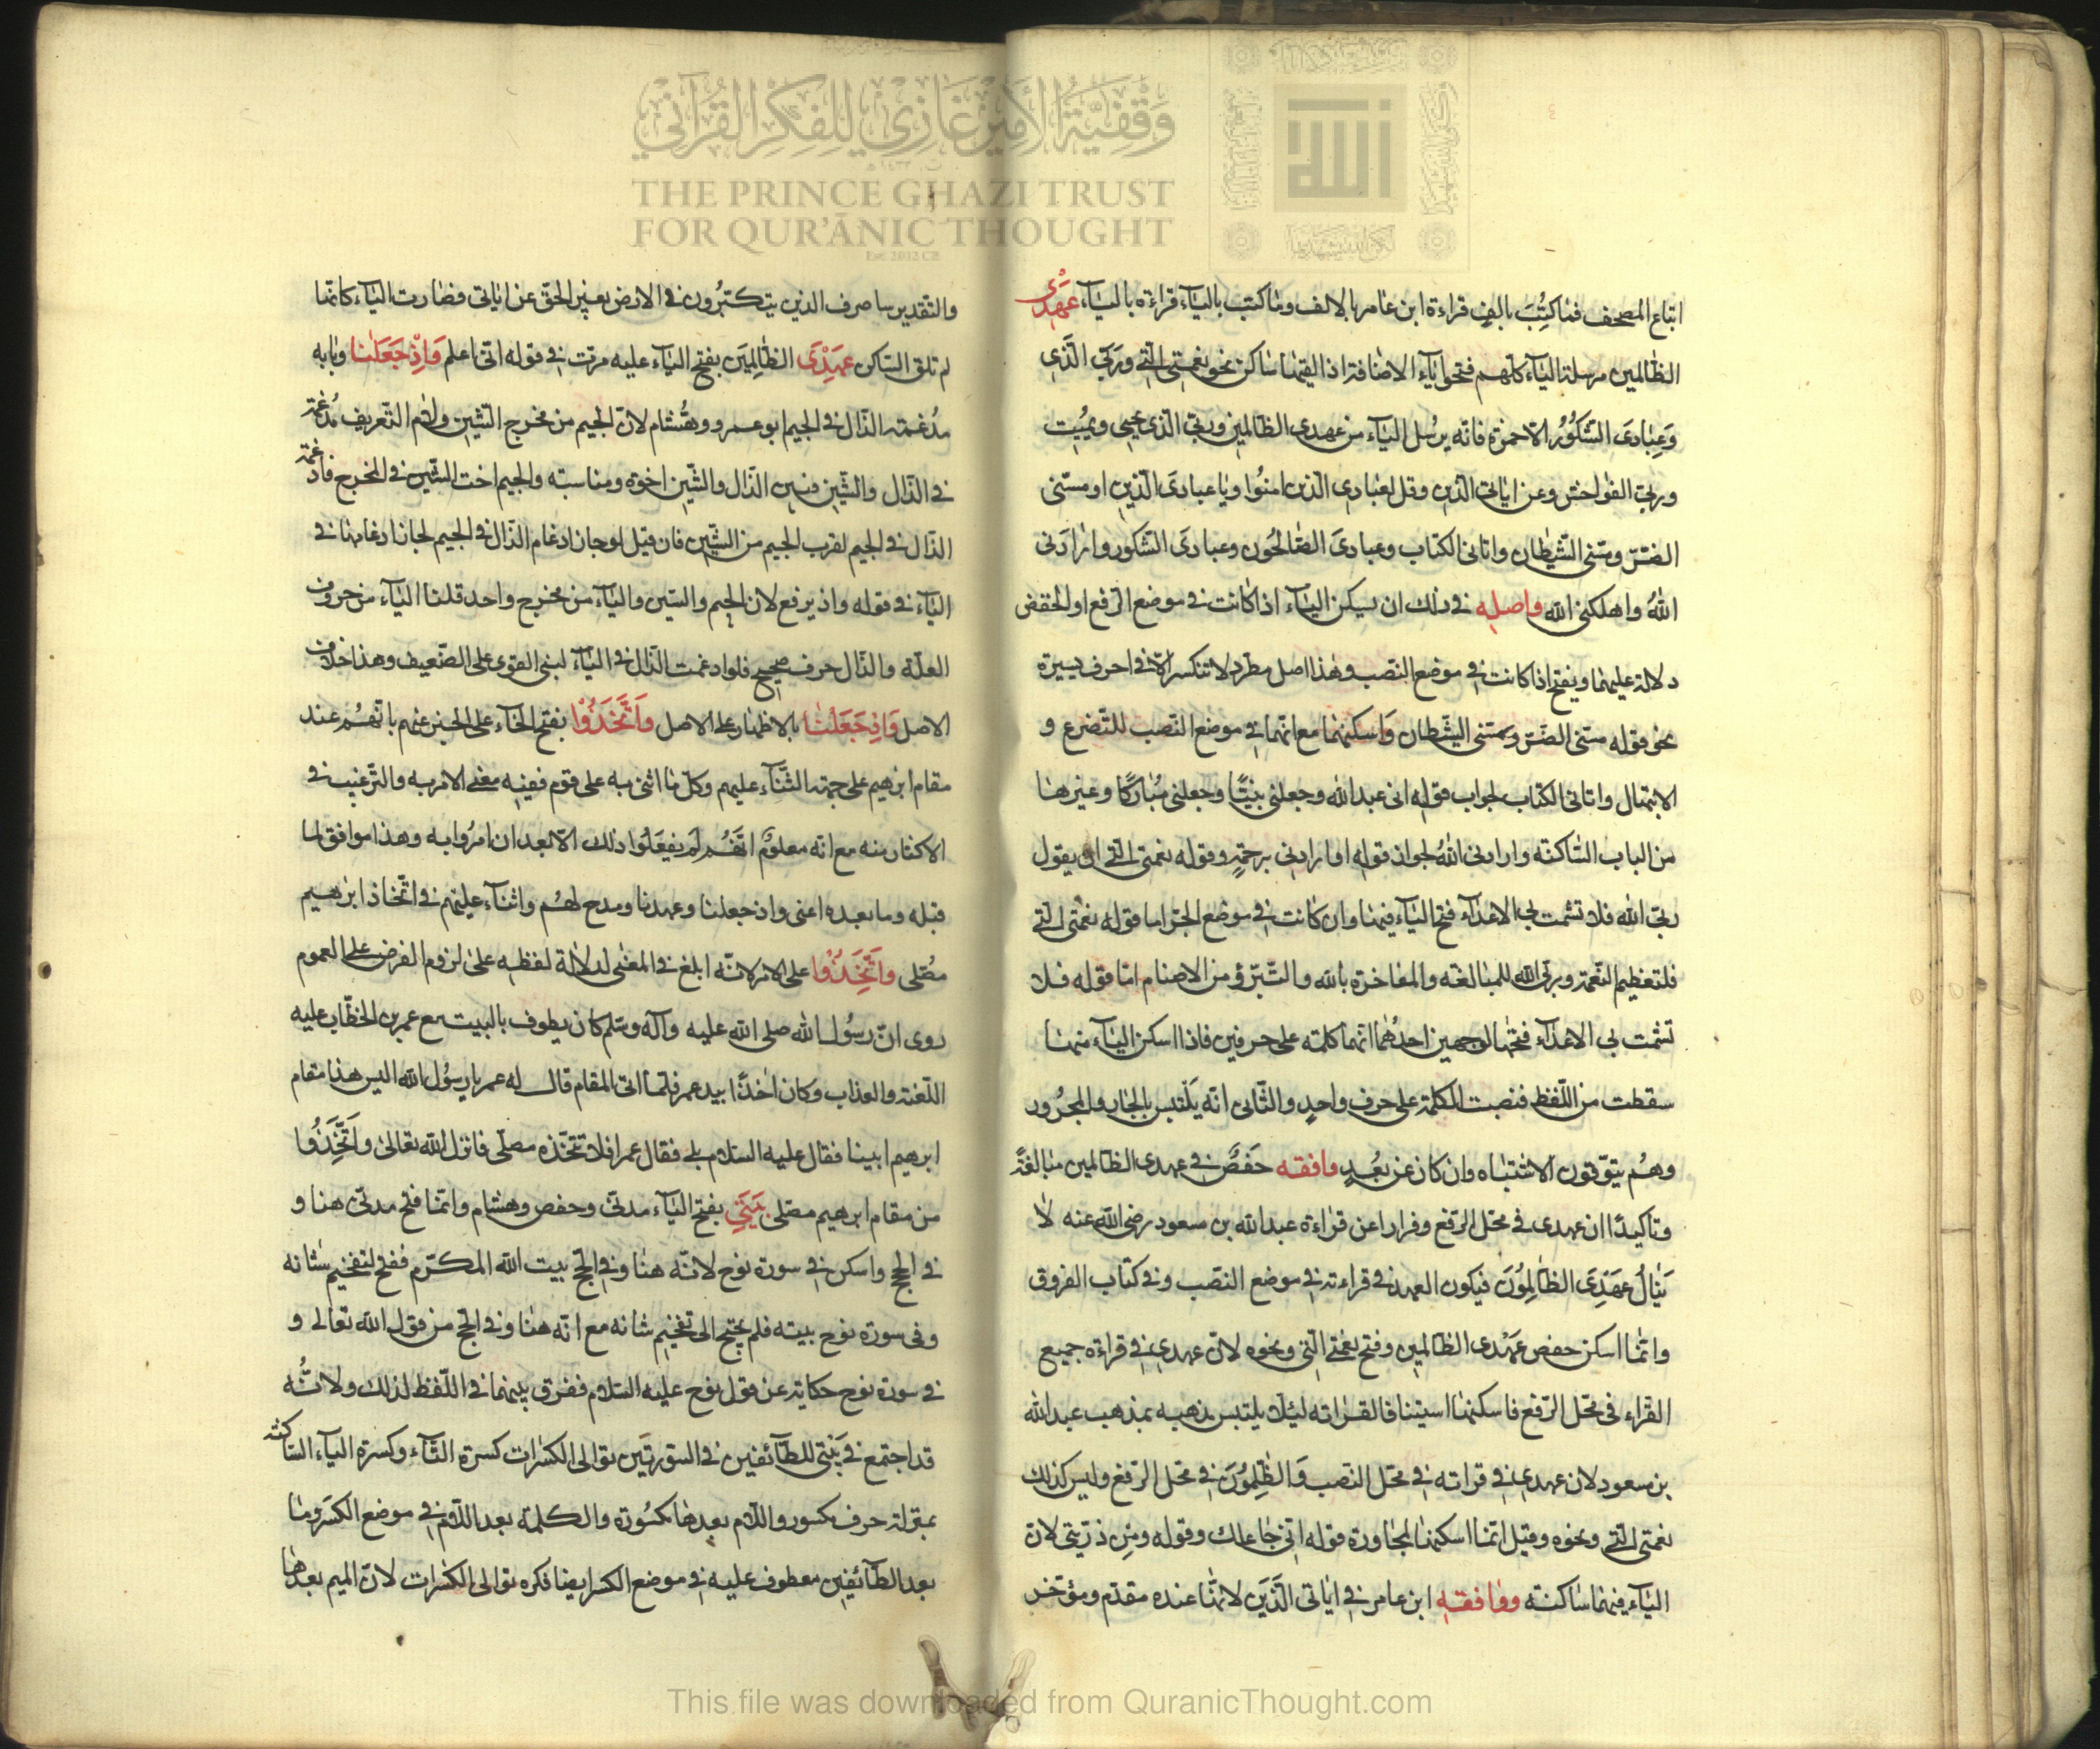 وَقْفِيَّةُ الأَمِيْرْ غَازِيْ لِلْفِكْرِ الْقُرْآنِيّ
THE PRINCE GHAZI TRUST
FOR QUR'ĀNIC THOUGHT
Est. 2012 CE
الله
اتباع المصحف فما كُتِبَ بالف قراءة ابن عامر بالالف وما كتب بالياء قراءة بالياء عَهْدِى
الظالمين مرسلة الياء كلهم فتحوا ياء الاضافة اذا لقيها ساكن نحو نعمتى التى وربى الذى
وَعِبَادِىَ الشَّكُورُ الا حمزة فانه يرسل الياء من عهدى الظالمين وربى الذى يحيى ويميت
وربى الفواحش وعن اياتى الذين وقل لعبادى الذين امنوا ويا عبادى الذين او مسّنى
الضّرّ ومسّنى الشيطان واتانى الكتاب وعبادى الصالحون وعبادى الشكور وارادنى
اللهُ واهلكنى الله واصله فى ذلك ان يسكن الياء اذا كانت فى موضع الرفع او الخفض
دلالة عليهما ويفتح اذا كانت فى موضع النصب وهذا اصل مطرد لا تنكسر الا فى احرف يسيرة
نحو قوله مسنى الضر ومسنى الشيطان وَاسكنهما مع انهما فى موضع النصب للتضرع و
الابتهال واتانى الكتاب لجواب قوله انى عبد الله وجعلنى نبيًّا وجعلنى مُبَاركًا وغيرها
من الباب الساكنة وارادنى اللهُ لجواز قوله او ارادنى برحمةٍ وقوله نعمتى التى ان يقول
ربى الله فلا تشمت بى الاعداء فتح الياء فيها وان كانت فى موضع الجر اما قوله نعمتى التى
فلتعظيم النعمة وربى الله للمبالغة والمفاخرة بالله والتبرّؤ من الاصنام امّا قوله فلا
تشمت بى الاعداء ففتحها لوجهين احدُهُما انها كلمة على حرفين فاذا اسكن الياء منها
سقطت من اللفظ فنصبت الكلمة على حرف واحدٍ والثانى انه يَلْتبس بالجار والمجرور
وهُم يتوقون الاشتباه وان كان عن بُعدٍ وافقه حَفصٌ فى عهدى الظالمين مبالغةً
وتاكيدًا ان عهدى فى محل الرفع وفرارا عن قراءة عبد الله بن مسعود رضى الله عنه لا
يَنَالُ عَهْدِىَ الظَّالِمُوْنَ فيكون العهد فى قراءته فى موضع النصب وفى كتاب الفروق
وانما اسكن حفص عَهْدى الظالمين وفتح نعمتى التى ونحوه لان عهدى فى قراءة جميع
القراء فى محل الرفع فاسكنها استينافا لقراته ليلا يلتبس مذهبه بمذهب عبد الله
بن مسعود لان عهدى فى قراته فى محل النصب وَالظَّالِمُوْنَ فى محل الرفع وليس كذلك
نعمتى التى ونحوه وقيل انما اسكنها لمجاورة قوله انى جاعلك وقوله ومن ذريتى لان
الياء فيهما ساكنة ووافقه ابن عامر فى اياتى الَّذِيَن لانها عنده مقدم ومؤخر
والتقدير ساصرف الذين يتكبّرُون فى الارض بغير الحق عن اياتى فصارت الياء كانها
لم تلق الساكن عَهْدِىَ الظَّالِمِيَن بفتح الياء عليه مرّت فى قوله انى اعلم وَاِذْ جَعَلْنَا وبابه
مُدْغمة الذال فى الجيم ابو عمرو وهُشام لان الجيم من مخرج الشين ولام التعريف مُدغمة
فى الذال والشين فبين الذال والشين اخوة ومناسبة والجيم اخت الشين فى المخرج فادغمة
الذال فى الجيم لقرب الجيم من الشين فان قيل لو جاز ادغام الذال فى الجيم لجاز ادغامها فى
الياء فى قوله واذ يرفع لان الجيم والشين والياء من مخرج واحد قلنا الياء من حروف
العلّة والذال حرف صحيح فلو ادغمت الذال فى الياء لبنى القوى على الضعيف وهذا خلاف
الاصل وَاِذ جَعَلْنَا بالاظهار على الاصل وَاتَّخَذُوْا بفتح الخاء على الخبر عنهم بانهُم عند
مقام ابرهيم على جهة الثناء عليهم وكل ما اثنى به على قوم ففيه معنى الامر به والترغيب فى
الاكثار منه مع انه معلوم انهُم لم يفعَلُوا ذلك الا بعد ان امرُوا به وهذا موافق لما
قبله وما بعده اعنى واذ جعلنا وعهدنا ومدح لهُم واثناء عليهم فى اتخاذ ابرهيم
مُصّلى وَاتَّخِذُوْا على الامر لانه ابلغ فى المعنى لدلالة لفظه على لزوم الفرض على العموم
روى انّ رسُول الله صلى الله عليه وآله وسلم كان يطوف بالبيت مع عمر بن الخطاب عليه
اللعنة والعذاب وكان اخذًا بيد عمر فلما اتى المقام قال له عمر يا رسُول الله اليس هذا مقام
ابرهيم ابينا فقال عليه السلام بلى فقال عمر افلا تتخذه مصلى فانزل الله تعالى وَاتَّخِذُوا
من مقام ابرهيم مصلى بَيْتِىَ بفتح الياء مدنىّ وحفص وهشام وانما فتح مدنى هنا و
فى الحج واسكن فى سورة نوح لانه هنا وفى الحج بيت الله المكرّم ففتح لتفخيم شانه
وفى سورة نوح بيته فلم يحتج الى تفخيم شانه مع انه هنا وفى الحج من قول الله تعالى و
فى سورة نوح حكاية عن قول نوح عليه السلام ففرق بينهما فى اللفظ لذلك ولانّه
قد اجتمع فى بَيْتى للطائفين فى السورتين توالى الكسرات كسرة التاء وكسرة الياء الساكنة
بمنزلة حرف مكسور واللام بعدها مكسُورة والكلمة بعد اللام فى موضع الكسر وما
بعد الطائفين معطوف عليه فى موضع الكسر ايضا فكره توالى الكسرات لان الميم بعدها
This file was downloaded from QuranicThought.com